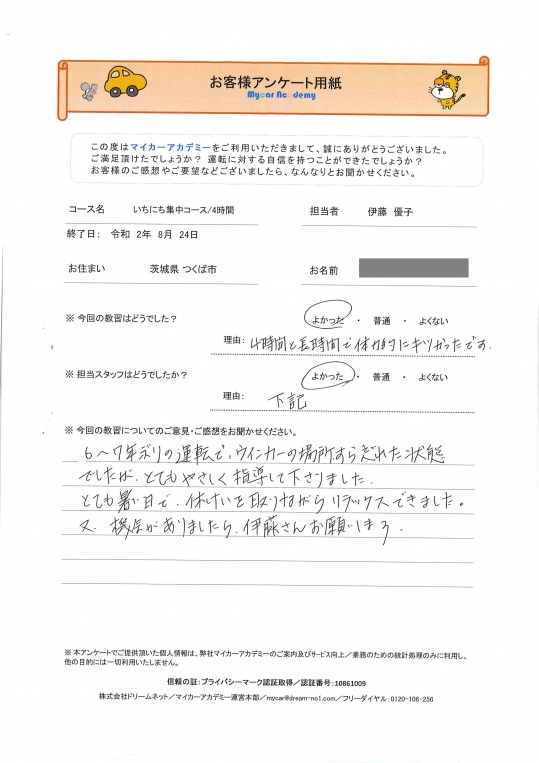 お客様アンケート用紙
Mycar Academy
この度はマイカーアカデミーをご利用いただきまして、誠にありがとうございました。
ご満足頂けたでしょうか？ 運転に対する自信を持つことができたでしょうか？
お客様のご感想やご要望などございましたら、なんなりとお聞かせください。
コース名 いちにち集中コース/4時間 担当者 伊藤 優子
終了日： 令和 2年 8月 24日
お住まい 茨城県 つくば市 お名前
※ 今回の教習はどうでした？ よかった ・ 普通 ・ よくない
理由： 4時間と長時間で体力的にキツかったです。
※ 担当スタッフはどうでしたか？ よかった ・ 普通 ・ よくない
理由： 下記
※ 今回の教習についてのご意見・ご感想をお聞かせください。
6～7年ぶりの運転で、ウインカーの場所すら忘れた状態
でしたが、とてもやさしく指導して下さりました。
とても暑い日で、休けいを取りながらリラックスできました。
又、機会がありましたら、伊藤さんお願いしまう.
※ 本アンケートでご提供頂いた個人情報は、弊社マイカーアカデミーのご案内及びサービス向上／業務のための統計処理のみに利用し、
他の目的には一切利用いたしません。
信頼の証：プライバシーマーク認証取得／認証番号：10861009
株式会社ドリームネット／マイカーアカデミー運営本部／mycar@dream-no1.com／フリーダイヤル：0120-106-256